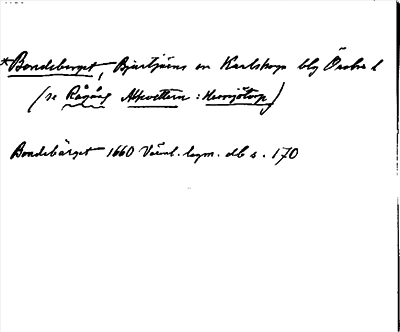 *Bondeberget, Bjurtjärns sn Karlskoga blg Örebro l
(se Rågås Alkvettern : Herrsjötorp)
Bondebärget 1660 Värml. lagm. db s. 170